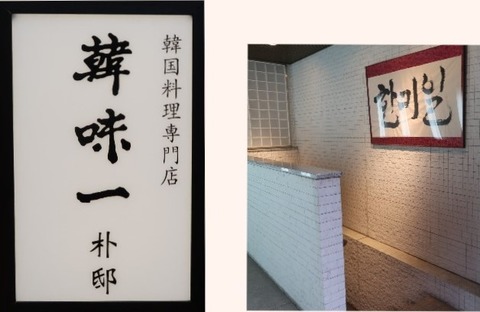 韓国料理専門店
韓味一
朴邸
한미일